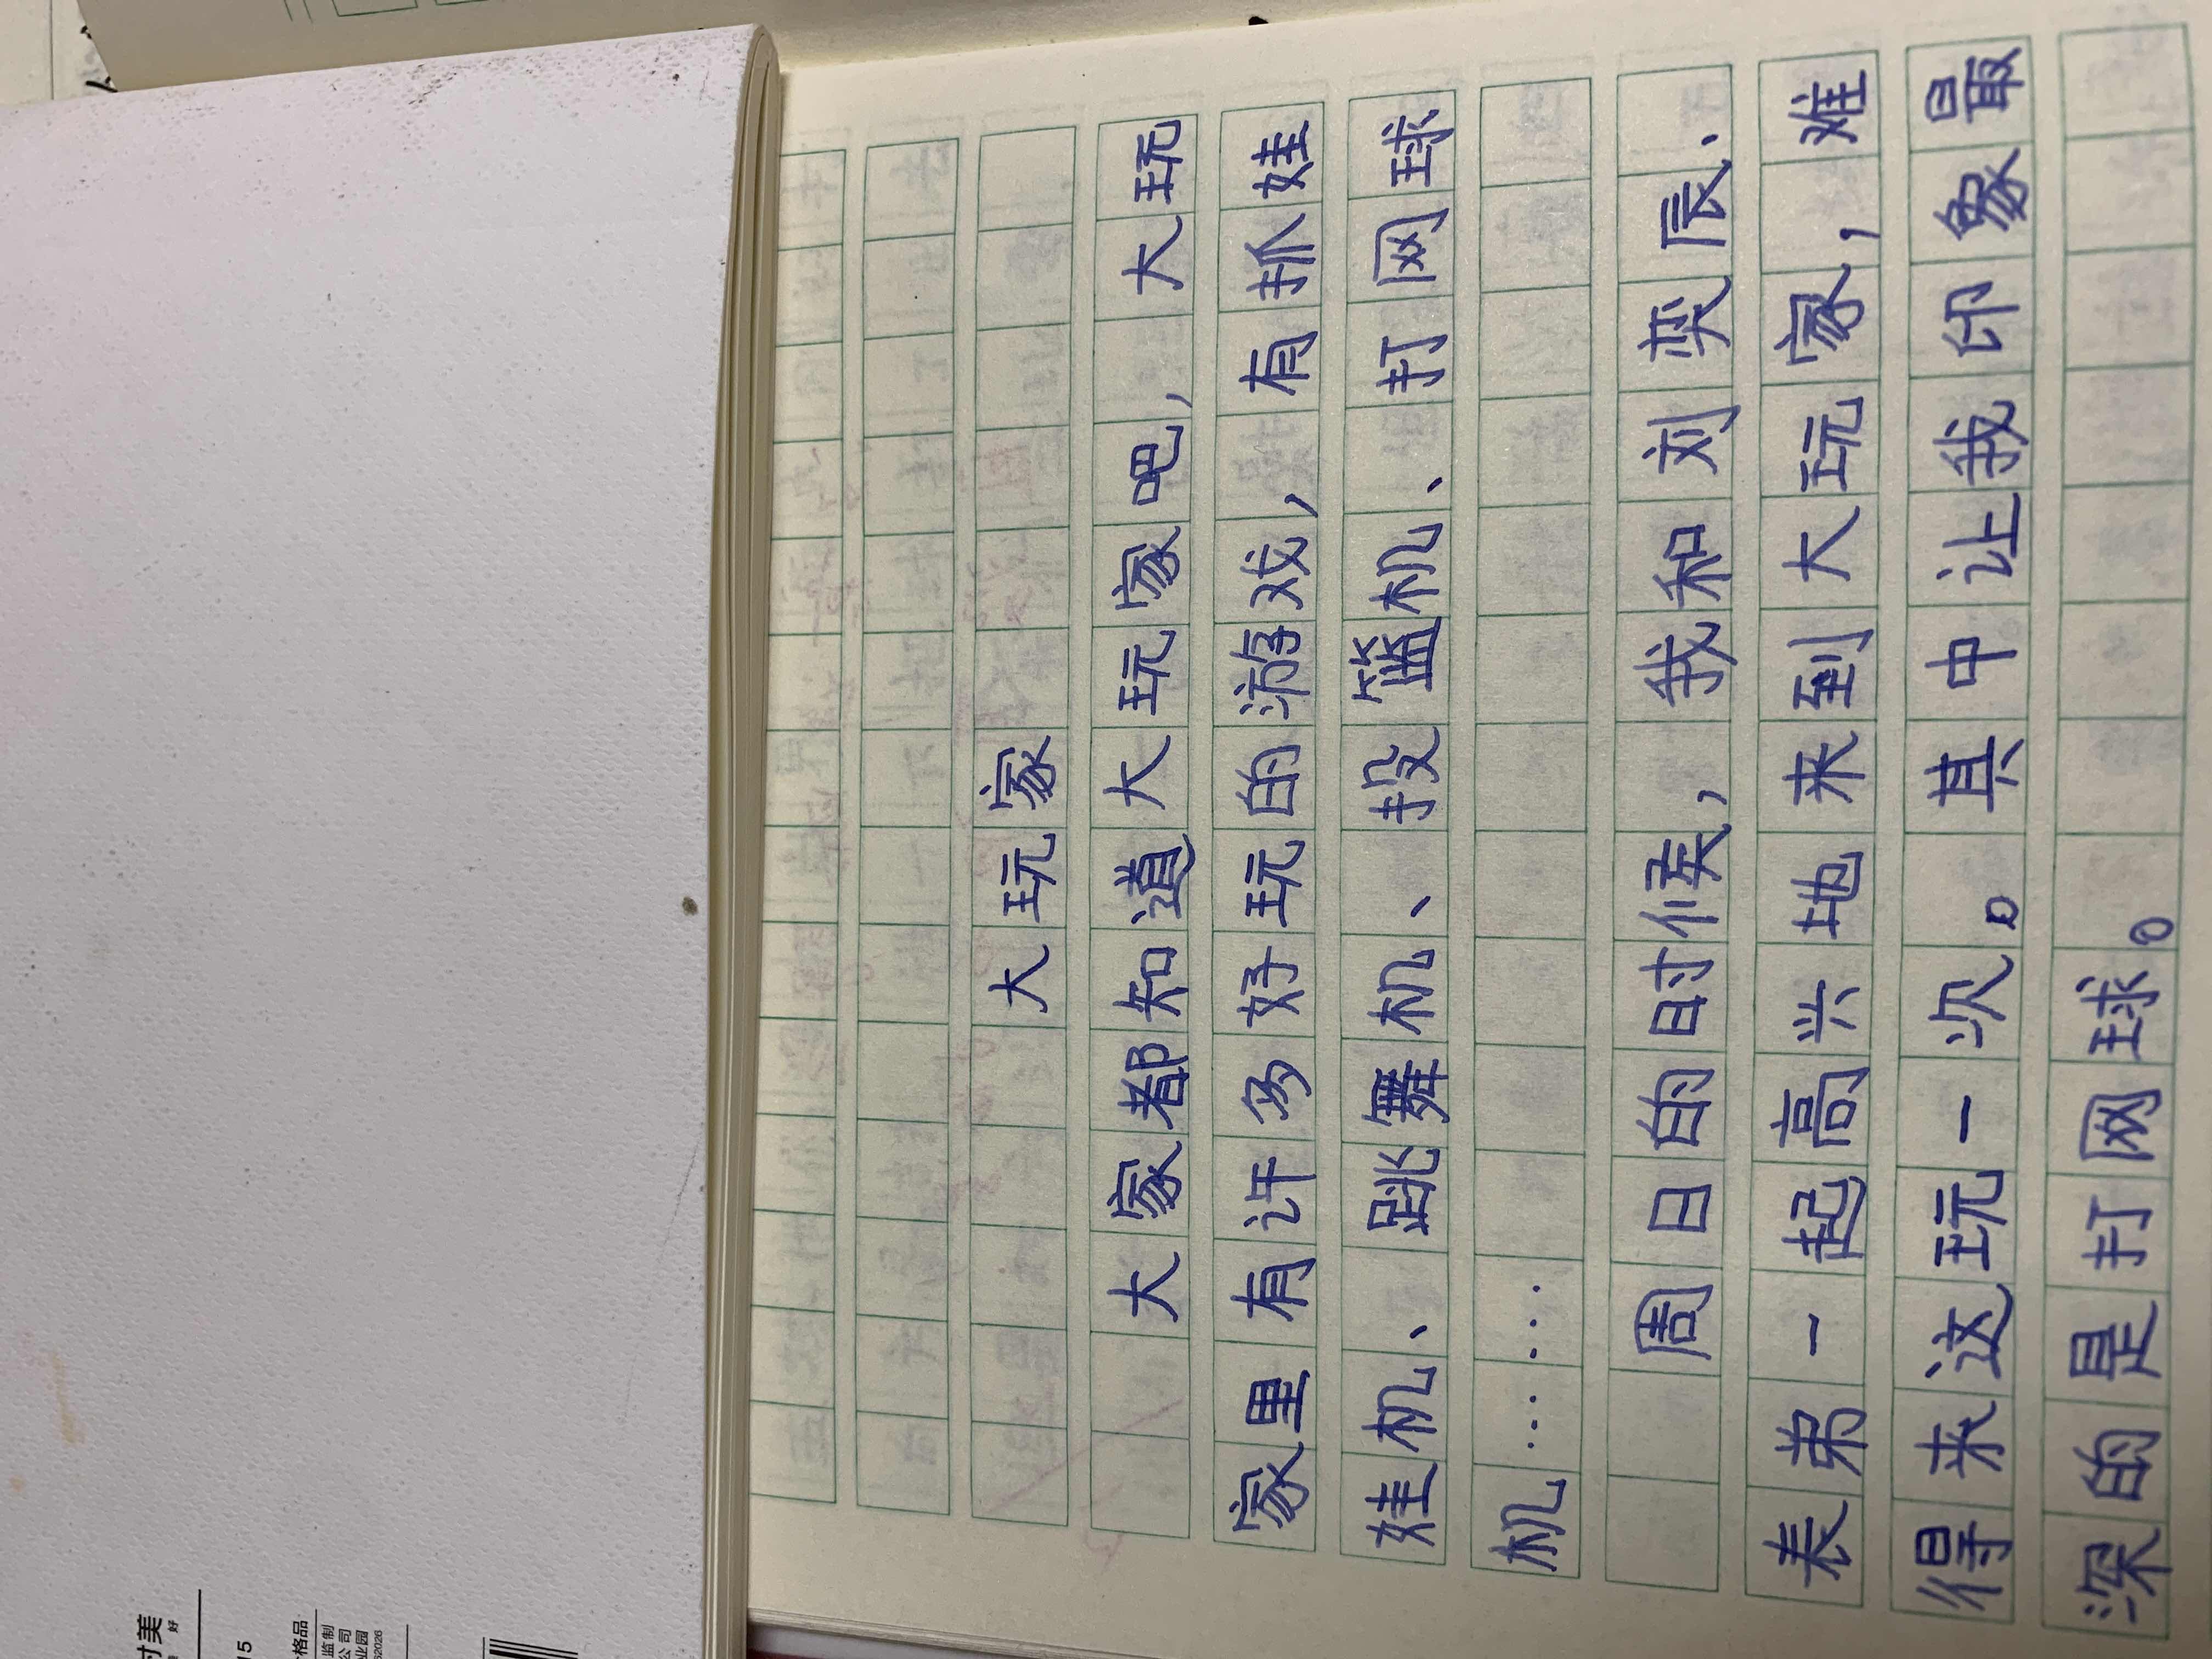 大玩家
大家都知道大玩家吧，大玩
家里有许多好玩的游戏，有抓娃
娃机、跳舞机、投篮机、打网球
机……
周日的时候，我和刘奕辰、
表弟一起高兴地来到大玩家，难
得来这玩一次。其中让我印象最
深的是打网球。